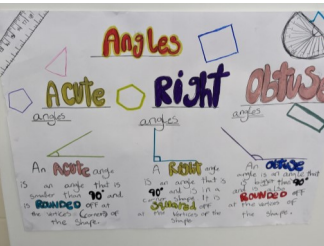 Angles
Acute
angles
Right
angles
Obtuse
angles
An Acute angle
is an angle that is
smaller than 90° and
is ROUNDED off at
the vertices (corners) of
the Shape.
A Right angle
is an angle that is
90° and is in a
shape. It is
Squared off
at the Vertices of
the Shape.
An Obtuse
angle is an angle that
is bigger than 90°
and is also
ROUNDED off
at the vertices of
the Shape.